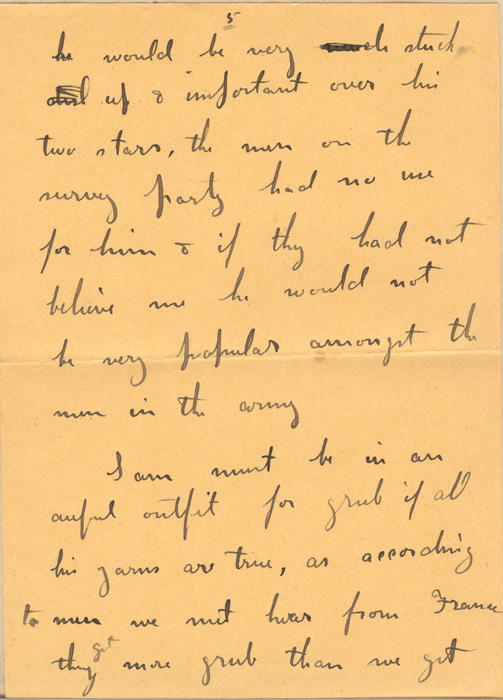 5
he would be very much stuck
and up & important over his
two stars, the men on the
survey party had no use
for him & if they had not
believe me he would not
be very popular amongst the
men in the army
Sam must be in an
awful outfit for grub if all
his yarns are true, as according
to men we met hear from France
they get more grub than we get